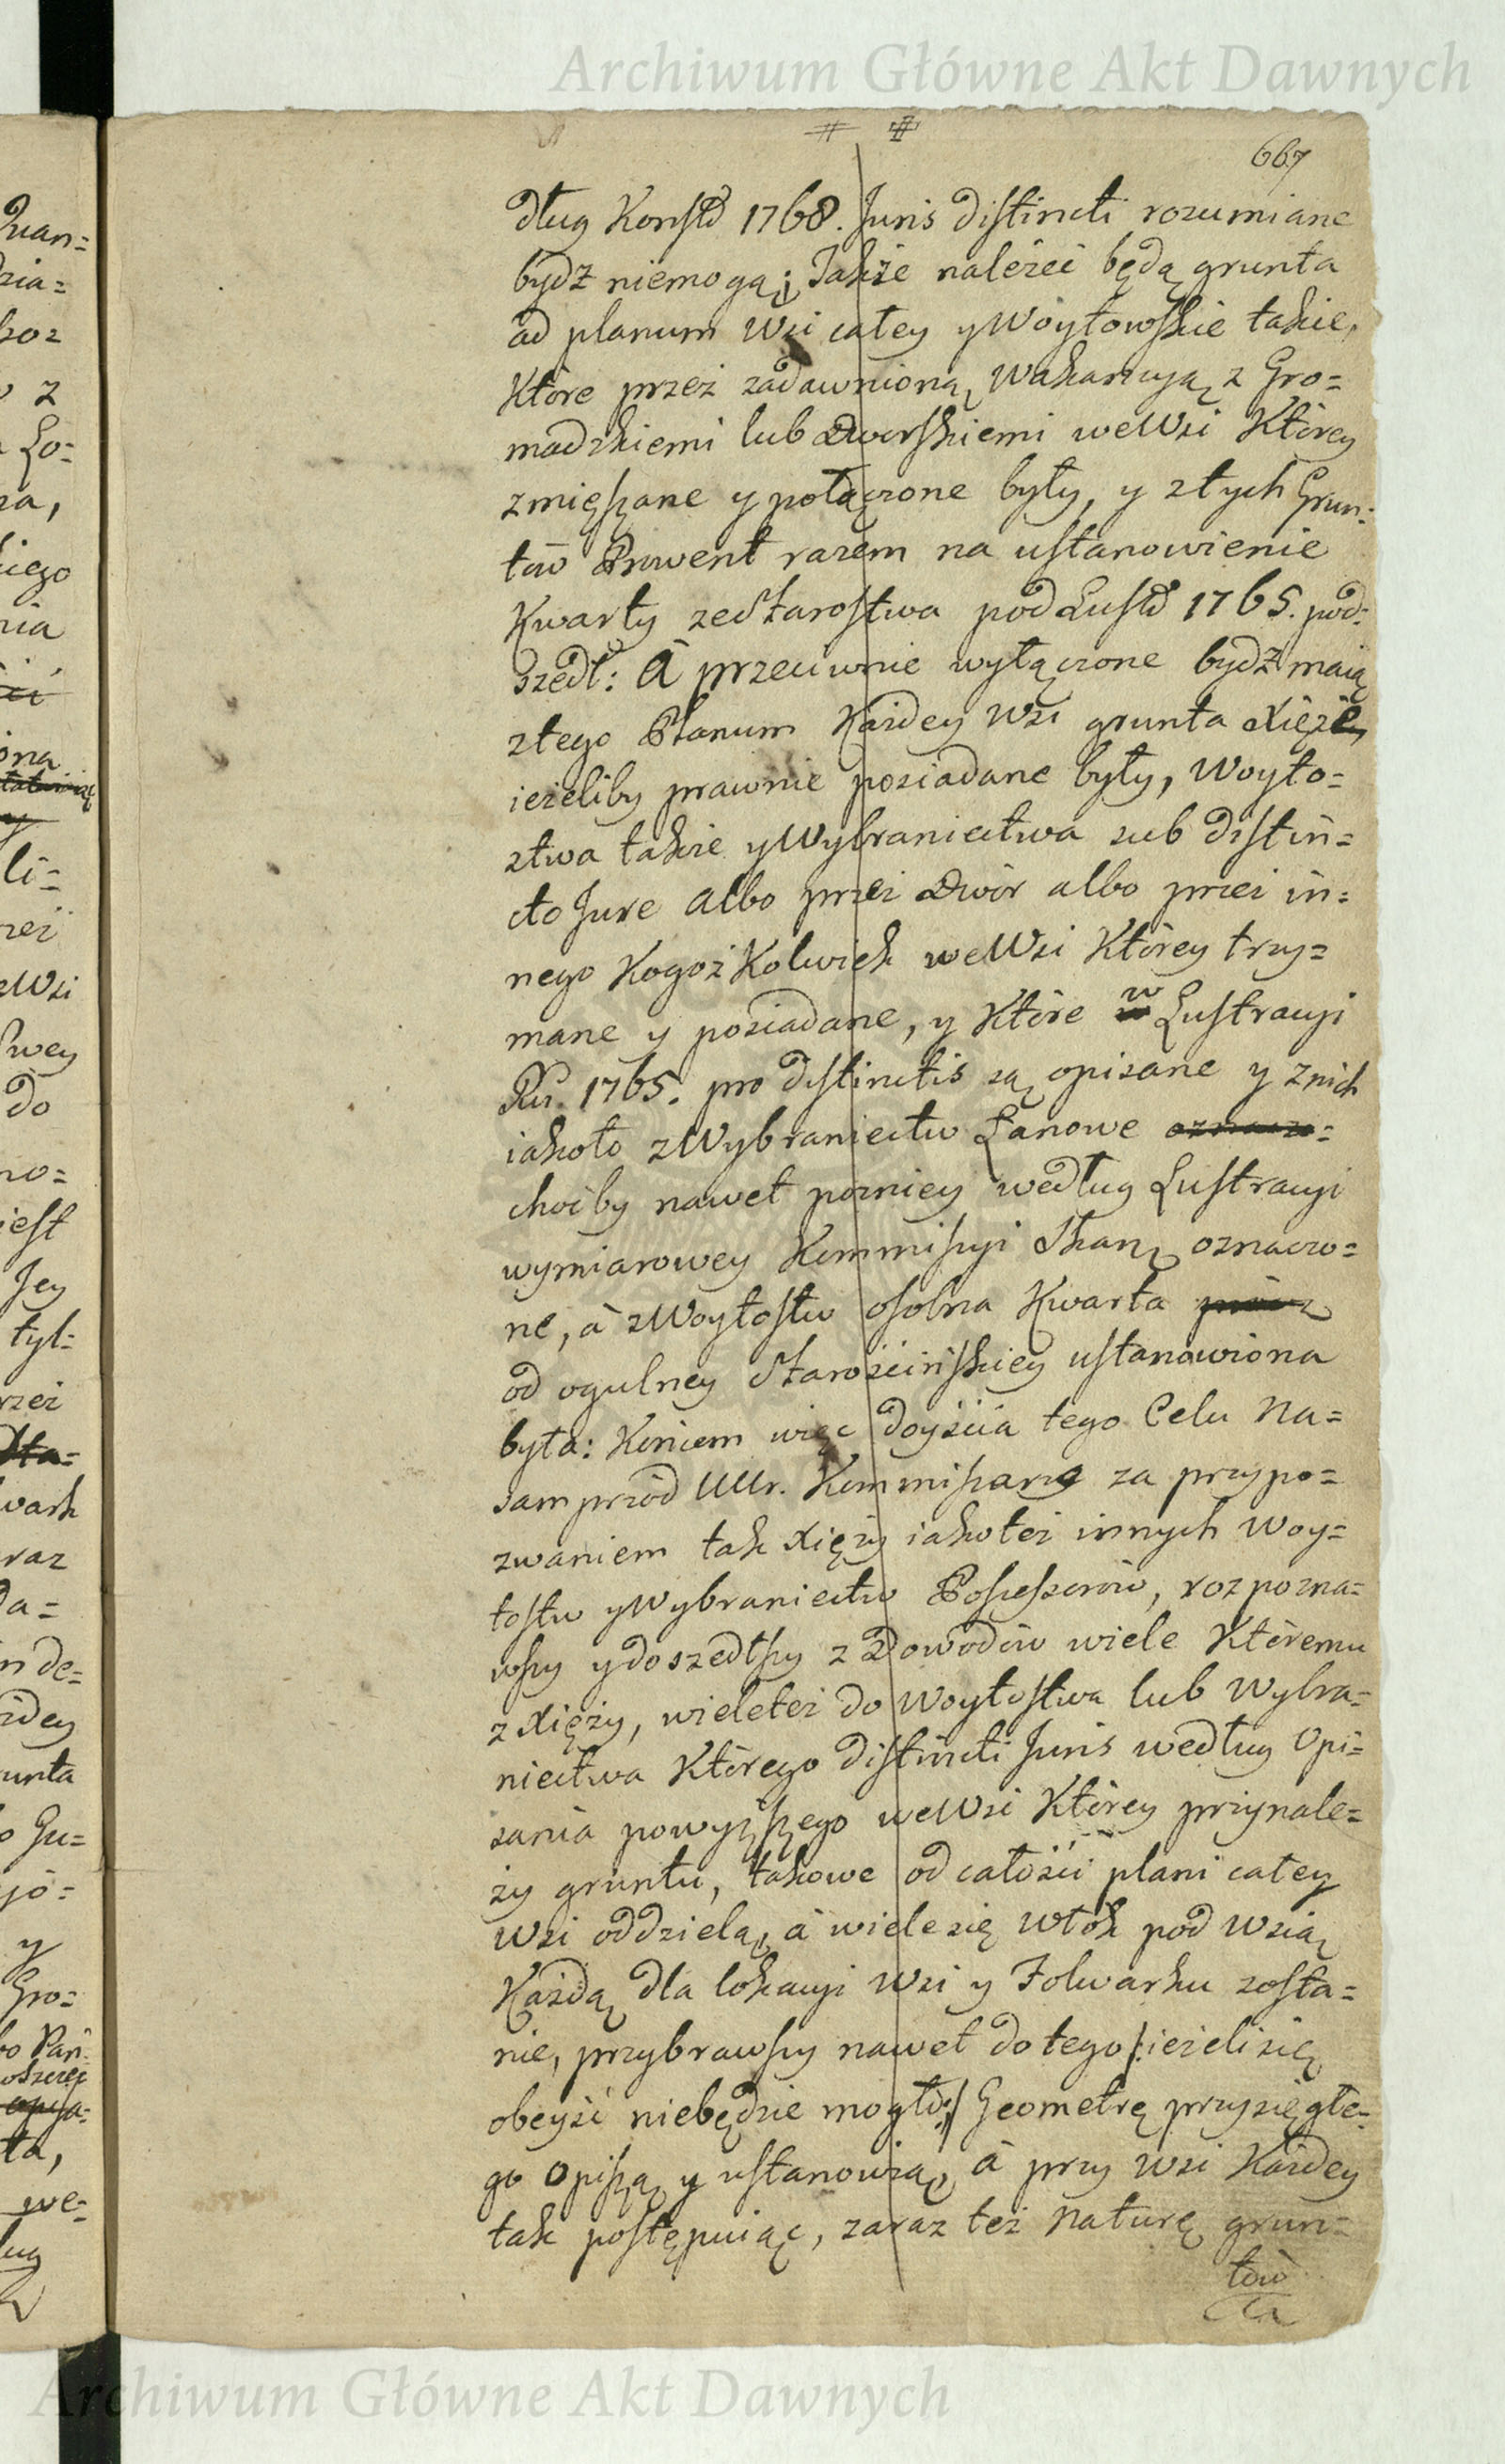 Archiwum Główne Akt Dawnych
# #
667
dług Konstõ 1768. Juris distincti rozumiane
bydz niemogą; Także należeć będą grunta
ad planum Wsi całey y Woytowskie takie,
Które przez zadawnioną Wakancyą z Gro=
madzkiemi lub Dworskiemi weWsi Którey
zmięszane y połączone były, y ztych Grun=
tów Prowent razem na ustanowienie
Kwarty zeStarostwa pod Lustõ 1765. pod=
szedł: à przeciwnie wyłączone bydz maią
ztego Planum Każdey Wsi grunta Xięże,
ieżeliby prawnie posiadane były, Woyto=
stwa także yWybraniectwa sub distin=
cto Jure albo przez Dwór albo przez in=
nego KogożKolwiek weWsi Którey trzy=
mane y posiadane, y Które w Lustracyi
Ru. 1765. pro distinctis są opisane y znich
iakoto zWybraniectw Łanowe
choćby nawet pozniey według Lustracyi
wymiarowey Kommissyi Skarb. oznaczo=
ne, à zWoytostw osobna Kwarta
od ogulney Starościńskiey ustanowiona
była: Końcem więc doyścia tego Celu Na=
samprzód UUr. Kommissarze za przypo=
zwaniem tak Xięży iakoteż innych Woy=
tostw yWybraniectw Possessorów, rozpozna=
wszy ydoszedłszy z Dowodów wiele Któremu
z Xięży, wieleteż do Woytostwa lub Wybra=
niectwa Którego distincti Juris według Opi=
sania powyższego weWsi Którey przynale=
ży gruntu, takowe od całości plani całey
Wsi oddzielą, à wielesię Włók pod Wsią
Każdą dla lokacyi Wsi y Folwarku zosta=
nie, przybrawszy nawet do tego /: ieżeli się
obeyść niebędzie mogło :/ Geometrę przysięgłe=
go opiszą y ustanowią, à przy Wsi Każdey
tak postępuiąc, zaraz też Naturę grun=
tów
Archiwum Główne Akt Dawnych